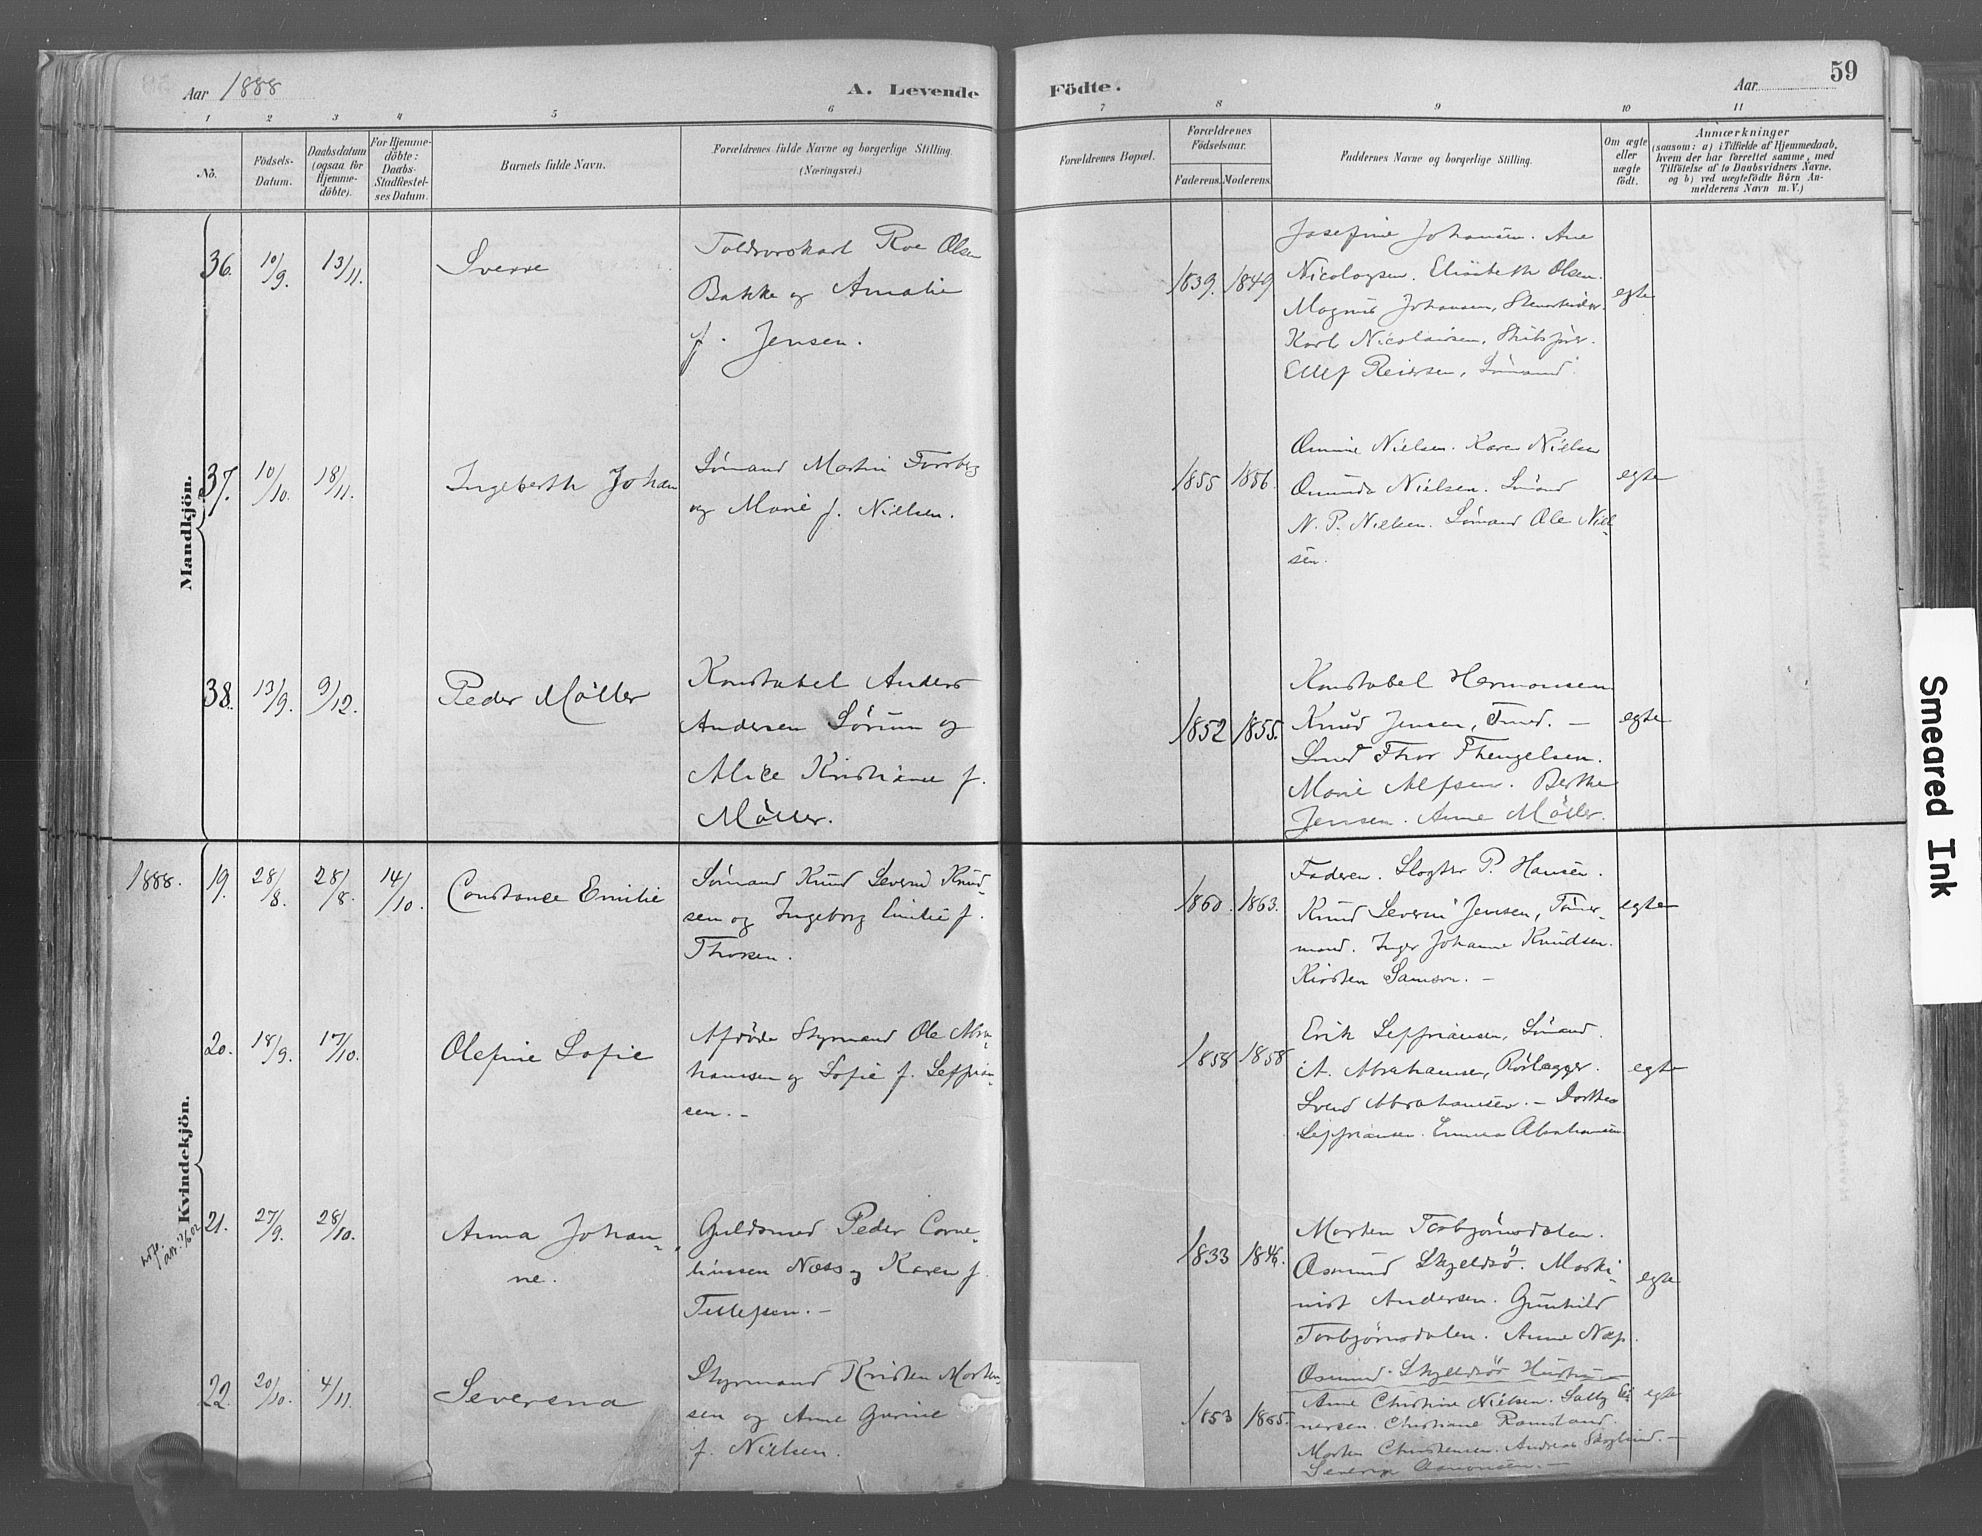 Aar 1888
A. Levende Födte.
Aar
59
1 2 3 4 5 6 7 8 9 10 11
No.
Födsels-
Datum.
Daabsdatum
(ogsaa for
Hjemme-
döbte).
For Hjemme-
döbte:
Daabs-
Stadfæstel-
ses Datum.
Barnets fulde Navn.
Forældrenes fulde Navne og borgerlige Stilling.
(Næringsvei.)
Forældrenes Bopæl.
Forældrenes
Födselsaar.
Faderens. Moderens.
Faddernes Navne og borgerlige Stilling.
Om ægte
eller
uægte
födt.
Anmærkninger
(saasom: a) i Tilfælde af Hjemmedaab,
hvem der har forrettet samme, med
Tilföielse af to Daabsvidners Navne,
og b) ved uægtefödte Börn An-
melderens Navn m. V.)
Mandkjön.
36. 10/9. 13/11. Sverre
Toldvorskarl Roe Olsen
Bakke og Amalie
f. Jensen.
1839. 1849
Josefine Johansen. Ane
Nicolaysen. Elisabeth Olsen.
Magnus Johansen, Stenarbeider.
Karl Nicolaisen, Skibsfører.
Ellef Reiersen, Sømand.
egte
37. 10/10. 18/11. Ingebreth Johan
Sømand Martin Torrberg
og Marie f. Nielsen.
1855 1856.
Osmine Nielsen. Karen Nielsen
Osmunda Nielsen. Sømand
N. P. Nielsen. Sømand Ole Niel-
sen.
egte
38. 13/9. 9/12. Peder Möller
Konstabel Anders
Andersen Sörum og
Alice Kristiane f.
Møller.
1852 1855.
Konstabel Hermansen
Knud Jensen, Tmd. —
Smed Thor Thengelsen.
Marie Alfsen. Berthe
Jensen. Anne Möller.
egte
Kvindekjön.
1888. 19. 28/8. 28/8. 14/10. Constance Emilie
Sømand Knud Severin Knud-
sen og Ingeborg Emilie f.
Thorsen.
1860. 1863.
Faderen. Slagter P. Hansen.
Knud Severin Jensen, Tömer-
mand. Inger Johanne Knudsen.
Kirsten Samson. —
egte
20. 18/9. 17/10. Olefine Sofie
Afdøde Styrmand Ole Abra-
hamsen og Sofie f. Seffrian-
sen. —
1858 1858
Erik Seffriansen, Sømand.
A. Abrahamsen, Rørlægger.
Svend Abrahamsen. — Dorthea
Seffriansen. Emma Abrahamsen
egte
21. 27/9. 28/10. Anna Johan-
ne.
Guldsmed Peder Corne-
liussen Næss og Karen f.
Tellefsen. —
1833 1846.
Morten Torbjørnsdalen.
Osmund Skjeldsö. Maski-
nist Andersen. Gunhild
Torbjørnsdalen. Anne Næs.
Osmund Skjeldsös Hustru —
egte
22. 20/10. 4/11. Severina
Styrmand Kristen Morten-
sen og Anne Gurine
f. Nielsen.
1853 1855.
Anne Christine Nielsen. Sally Ei-
nersen. Christiane Ramsland.
Morten Christensen. Andreas Skoglund. —
Severin Asmonsen. —
egte
Smeared Ink